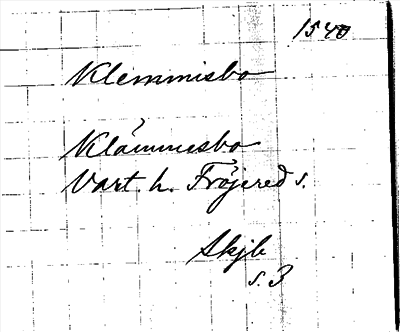 1540
Klemmisbo
Klämmesbo
Vart h. Fröjered s.
Skjb
s. 3